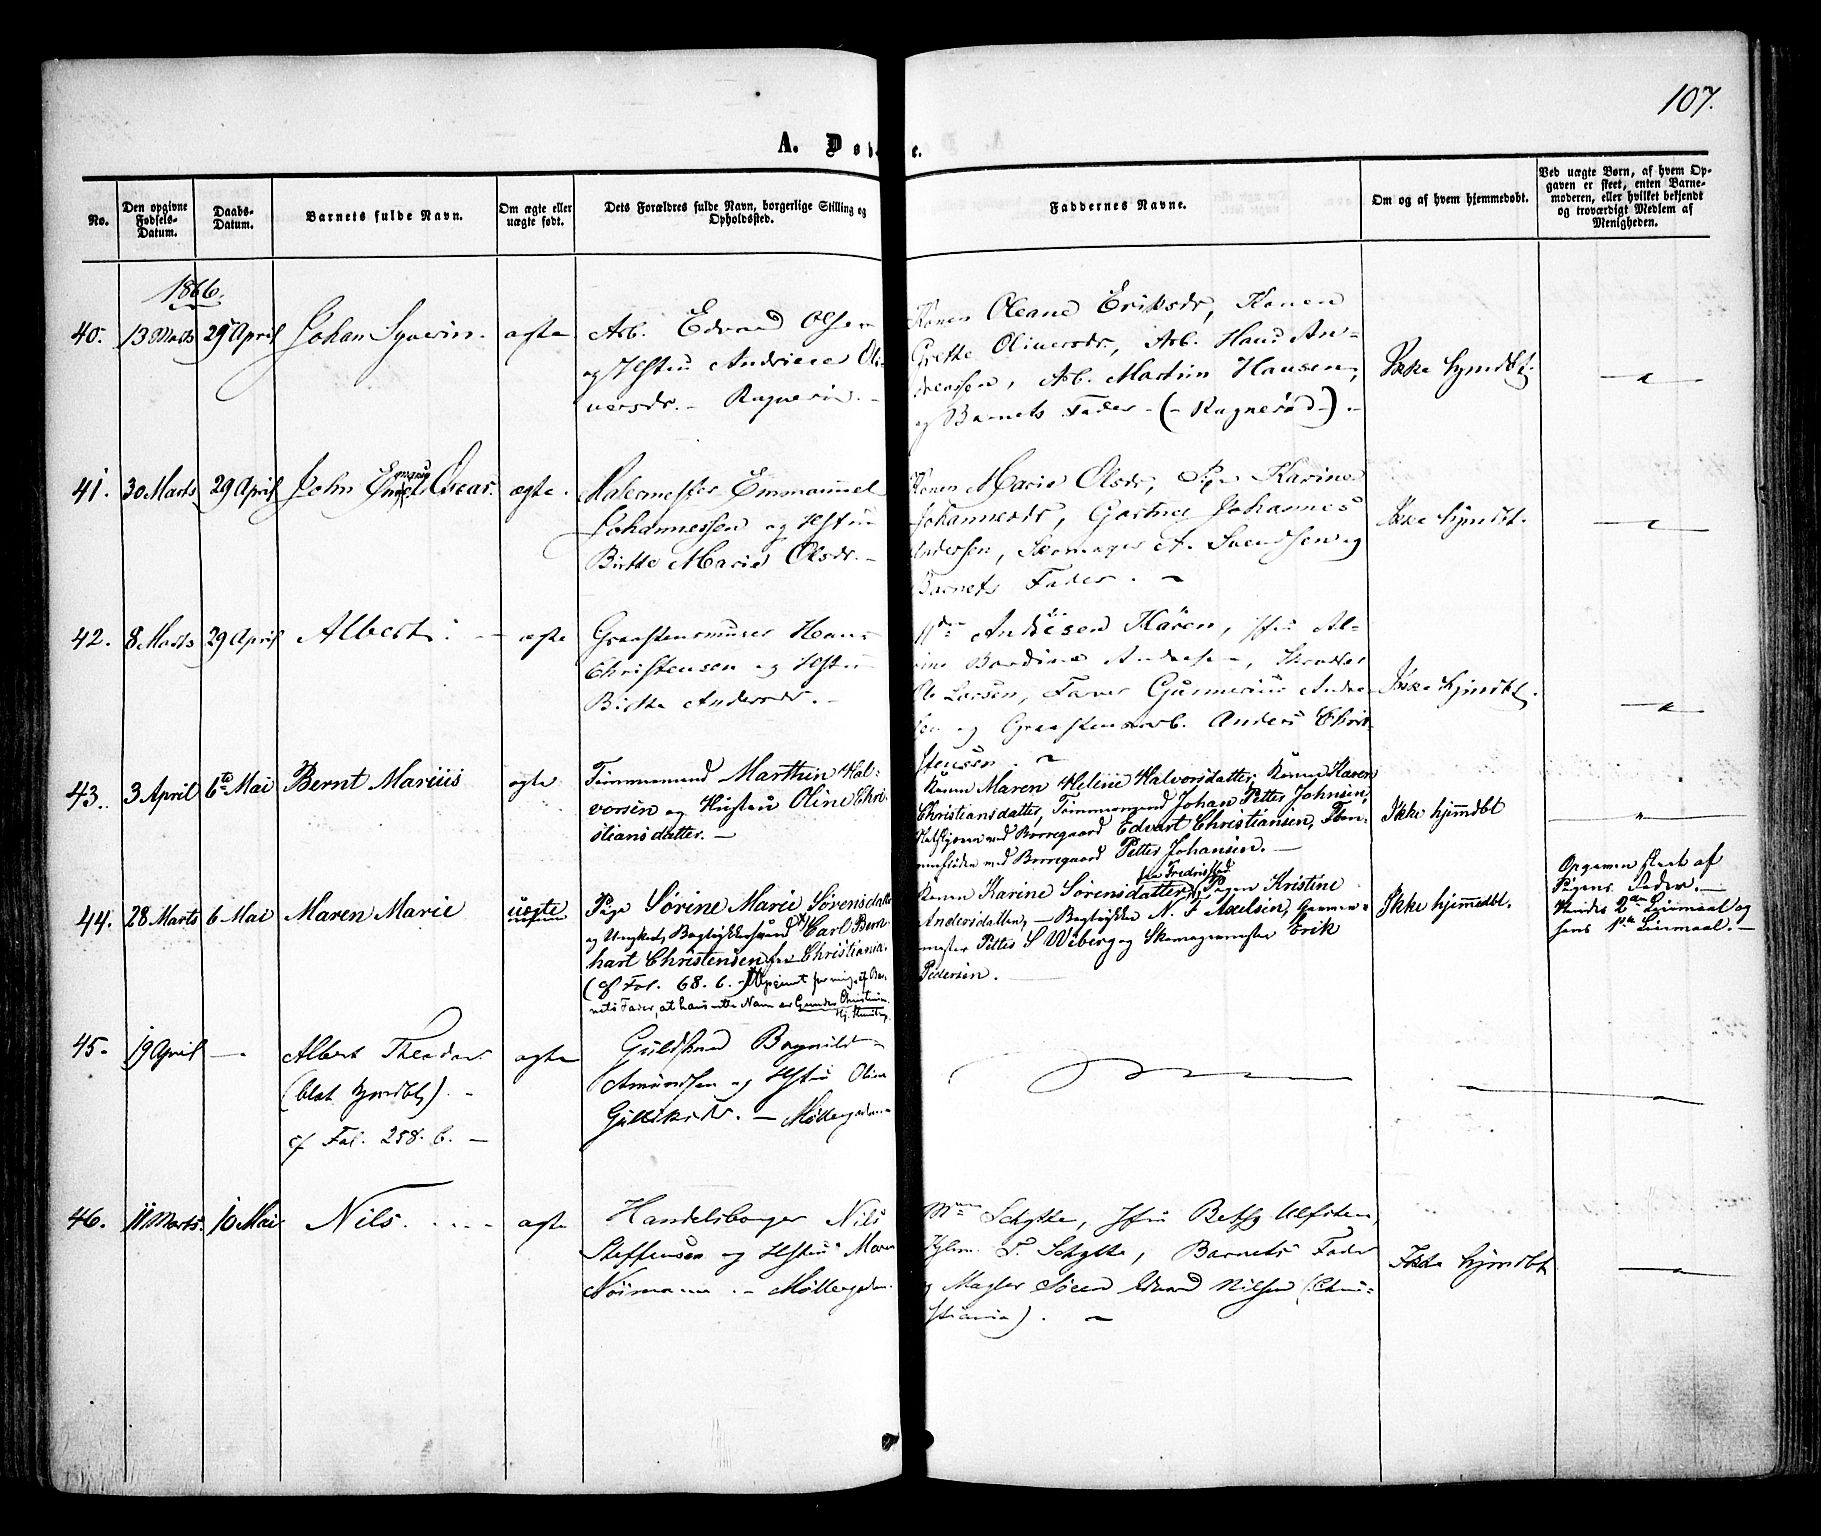 107.
A. Døbte.
No.
Den opgivne Fødsels-Datum.
Daabs-Datum.
Barnets fulde Navn.
Om ægte eller uægte født.
Dets Forældres fulde Navn, borgerlige Stilling og Opholdssted.
Faddernes Navne.
Om og af hvem hjemmedøbt.
Ved uægte Børn, af hvem Opgaven er skeet, enten Barnemoderen, eller hvilket bekjendt og troværdigt Medlem af Menigheden.
1866.
40. 13 Marts 29 April Johan Syverin. ægte
Arb. Edvard Olsen
og Hstru Andriene Oli-
versdr. -
Konen Oleane Eriksdr, Konen
Grethe Oliversdr, Arb. Hans An-
dreassen, Arb. Martin Hansen,
og Barnets Fader - (- Ragnerød -) . -
Ikke hjmdbt.
41. 30 Marts 29 April John Oscar. ægte.
Malermester Emmanuel
Johannessen og Hstru
Birthe Marie Olsdr. -
Konen Marie Olsdr, Pge Karine
Johannesdr, Gartner Johannes
Andersen, A. Svendsen og
Barnets Fader. -
Ikke hjmdbt.
42. 8 Marts 29 April Albert. - ægte
Graastensmurer Hans
Christensen og Hstru
Birthe Andersdr. -
Andersen, Jfru Al-
Ole Larsen, Farver Gunnerius Andre-
sen og Graastensarb. Anders Chris-
tensen. -
Ikke hjmdbt.
43. 3 April 6te Mai Bernt Marius ægte
Tømmermand Marthin Hal-
vorsen og Hustru Oline Chri-
stiansdatter. -
Konen Maren Heline Halvorsdatter, Konen Karen
Christiansdatter, Tømmermand Johan Petter Johnsen,
ved Borregaard Edvart Christiansen,
ved Borregaard Petter Johansen. -
Ikke hjemdbt
44. 28 Marts 6 Mai Maren Marie uægte
Pige Sørine Marie Sørensdatter
og Ungkarl, Bogtrykkersvend Carl Bern-
hart Christensen fra Christiania
(cf Fol. 68. b. -)
nets Fader, at hans rette Navn er Gunder Christensen
fra Fredrikstad
Konen Karine Sørensdatter, Pigen Kristine
Andersdatter, - Bogtrykker N. F Axelsen, Garver-
mester Petter S Wiberg og Skomagermester Erik
Pedersen. -
Ikke hjemmedbt.
Opgaven skeet af
Pigens Fader. -
Hendes 2det Leiermaal og
hans 1ste Leiermaal. -
45. 19 April - Albert Theodor ægte
(blot hjmdbt) . -
cf Fol. 258. b. -
Guldsmed
Amundsen og Hstru Oline
Gulliksdr. - Møllergaden
46. 11 Marts. 10 Mai Nils. ægte
Handelsborger Nils
Steffensen og Hstru Maren
- Møllergaden.
Schytte, Jfru Betsy Ulfsten,
Schytte, Barnets Fader
og Mægler Søren Edvard Nilsen (Chri-
stiania) . -
Ikke hjmdbt